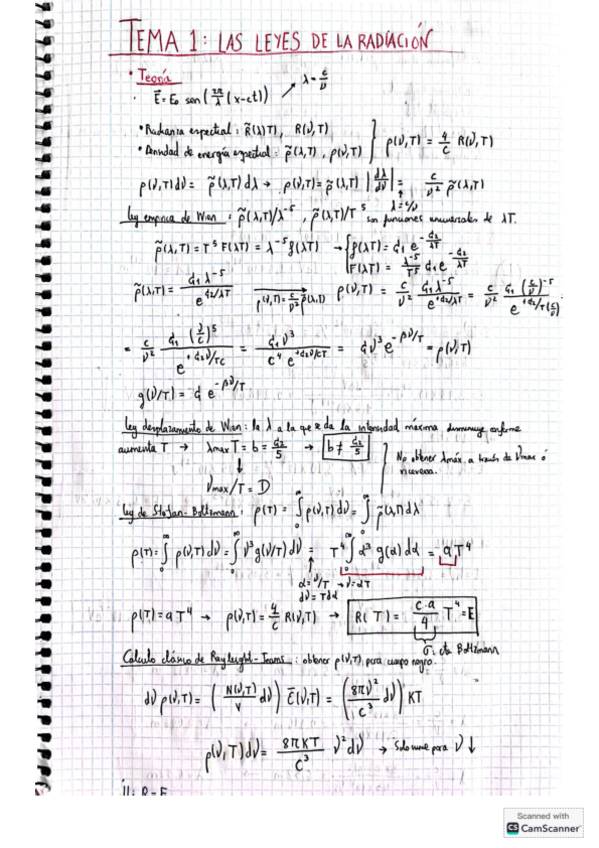 TEMA 1: LAS LEYES DE LA RADIACIÓN
• Teoría
· E⃗ = E₀ sen(2π/λ (x-ct)) ↗ λ = c/ν
• Radiancia espectral: R̃(λ,T), R(ν,T)
• Densidad de energía espectral: ρ̃(λ,T), ρ(ν,T) } ρ(ν,T) = 4/c R(ν,T)
ρ(ν,T)dν = ρ̃(λ,T)dλ → ρ(ν,T) = ρ̃(λ,T) |dλ/dν| = c/ν² ρ̃(λ,T)
↑ λ = c/ν
Ley empírica de Wien: ρ̃(λ,T)/λ⁻⁵, ρ̃(λ,T)/T⁵ son funciones universales de λT.
ρ̃(λ,T) = T⁵ F(λT) = λ⁻⁵ f(λT) → { f(λT) = C₁ e^(-C₂/λT)
F(λT) = λ⁻⁵/T⁵ C₁ e^(-C₂/λT)
ρ̃(λ,T) = C₁λ⁻⁵/e^(C₂/λT) → ρ(ν,T) = c/ν² ρ̃(λ,T) ρ(ν,T) = c/ν² C₁λ⁻⁵/e^(+C₂/λT) = c/ν² C₁(c/ν)⁻⁵/e^(+C₂/T(c/ν))
= c/ν² C₁(ν/c)⁵/e^(+C₂ν/Tc) = C₁ν³/(c⁴ e^(+C₂ν/cT)) = Cν³e^(-βν/T) = ρ(ν,T)
g(ν/T) = C e^(-βν/T)
Ley desplazamiento de Wien: la λ a la que se da la intensidad máxima disminuye conforme
aumenta T → λmax T = b = C₂/5 → b ≠ C₂/5
↓
νmax/T = D
No obtener λmáx. a través de νmax o
viceversa.
Ley de Stefan-Boltzmann: ρ(T) = ∫₀^∞ ρ(ν,T)dν = ∫₀^∞ ρ̃(λ,T)dλ
ρ(T) = ∫₀^∞ ρ(ν,T)dν = ∫₀^∞ ν³g(ν/T)dν = T⁴∫₀^∞ α³ g(α)dα = aT⁴
↑
α = ν/T → ν = αT
dν = Tdα
ρ(T) = aT⁴ → ρ(ν,T) = 4/c R(ν,T) → R(T) = c·a/4 T⁴ = E
σ: cte Boltzmann
Cálculo clásico de Rayleight-Jeans: obtener ρ(ν,T) para cuerpo negro.
dν ρ(ν,T) = (N(ν,T)/V dν) ε̄(ν,T) = (8πν²/c³ dν) KT
ρ(ν,T)dν = 8πKT/c³ ν²dν → Solo sirve para ν ↓
Scanned with
CS CamScanner